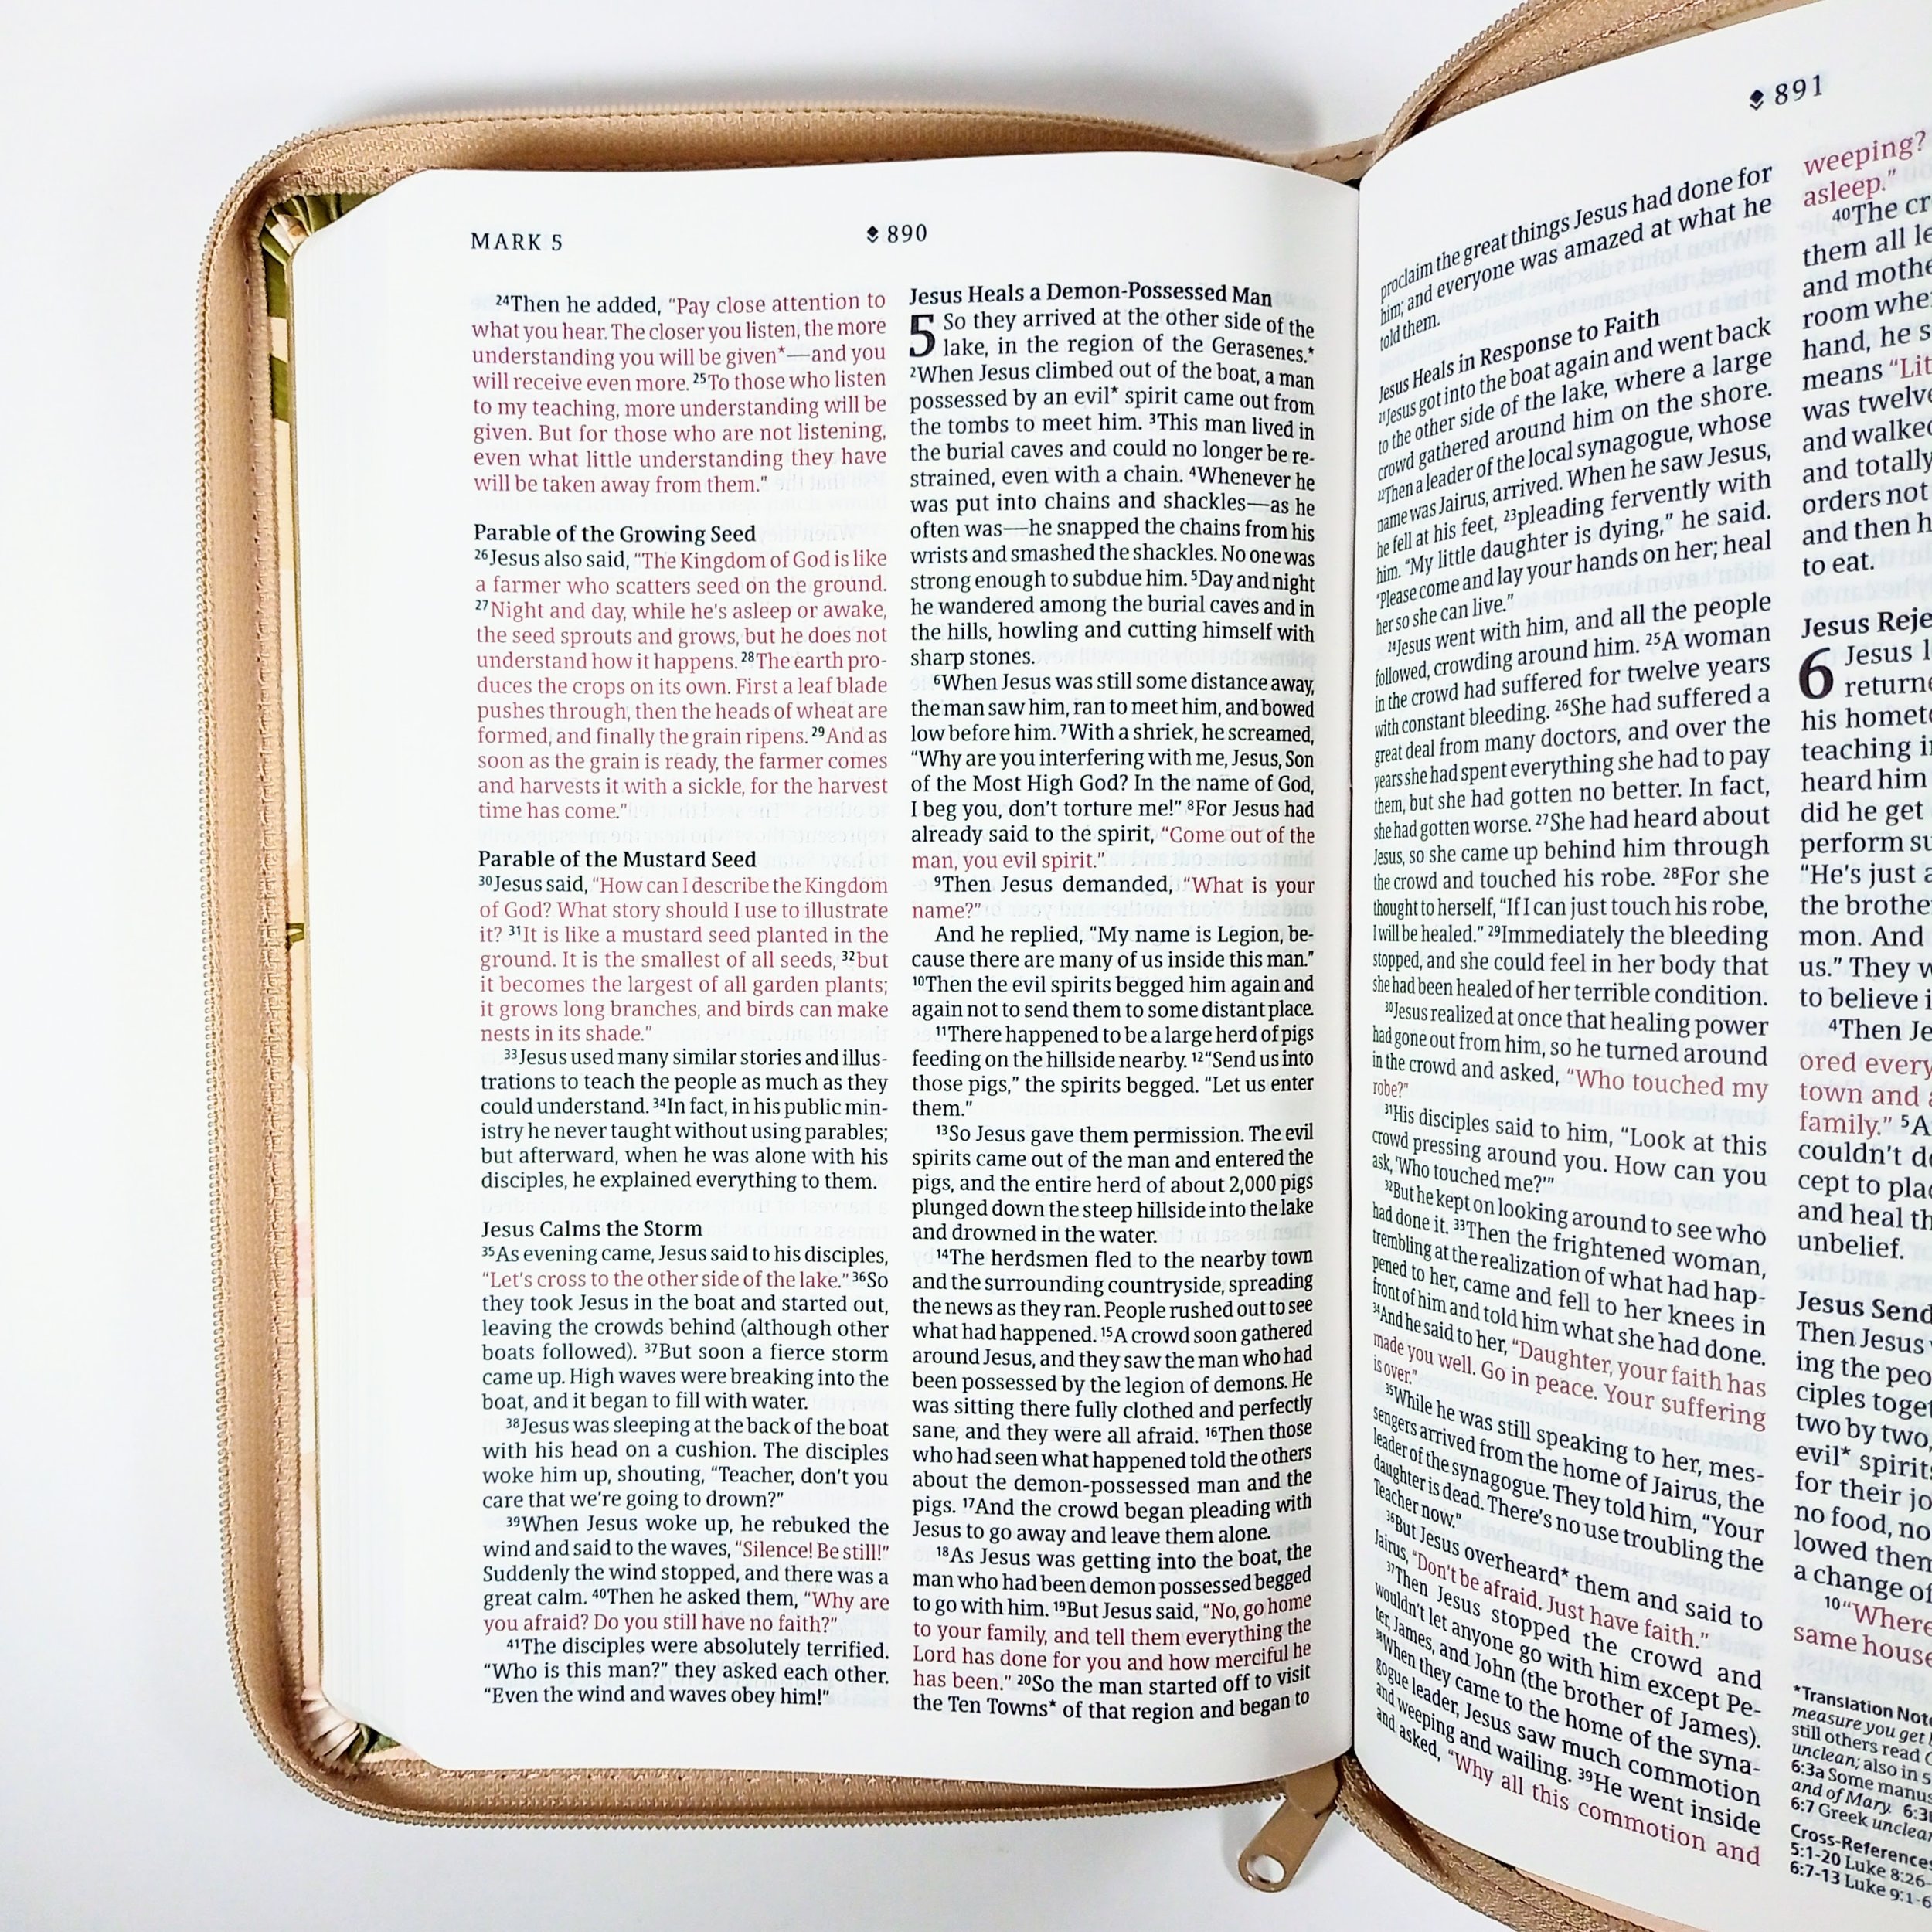 MARK 5
890
²⁴Then he added, “Pay close attention to
what you hear. The closer you listen, the more
understanding you will be given*—and you
will receive even more. ²⁵To those who listen
to my teaching, more understanding will be
given. But for those who are not listening,
even what little understanding they have
will be taken away from them.”
Parable of the Growing Seed
²⁶Jesus also said, “The Kingdom of God is like
a farmer who scatters seed on the ground.
²⁷Night and day, while he’s asleep or awake,
the seed sprouts and grows, but he does not
understand how it happens. ²⁸The earth pro-
duces the crops on its own. First a leaf blade
pushes through, then the heads of wheat are
formed, and finally the grain ripens. ²⁹And as
soon as the grain is ready, the farmer comes
and harvests it with a sickle, for the harvest
time has come.”
Parable of the Mustard Seed
³⁰Jesus said, “How can I describe the Kingdom
of God? What story should I use to illustrate
it? ³¹It is like a mustard seed planted in the
ground. It is the smallest of all seeds, ³²but
it becomes the largest of all garden plants;
it grows long branches, and birds can make
nests in its shade.”
³³Jesus used many similar stories and illus-
trations to teach the people as much as they
could understand. ³⁴In fact, in his public min-
istry he never taught without using parables;
but afterward, when he was alone with his
disciples, he explained everything to them.
Jesus Calms the Storm
³⁵As evening came, Jesus said to his disciples,
“Let’s cross to the other side of the lake.” ³⁶So
they took Jesus in the boat and started out,
leaving the crowds behind (although other
boats followed). ³⁷But soon a fierce storm
came up. High waves were breaking into the
boat, and it began to fill with water.
³⁸Jesus was sleeping at the back of the boat
with his head on a cushion. The disciples
woke him up, shouting, “Teacher, don’t you
care that we’re going to drown?”
³⁹When Jesus woke up, he rebuked the
wind and said to the waves, “Silence! Be still!”
Suddenly the wind stopped, and there was a
great calm. ⁴⁰Then he asked them, “Why are
you afraid? Do you still have no faith?”
⁴¹The disciples were absolutely terrified.
“Who is this man?” they asked each other.
“Even the wind and waves obey him!”
Jesus Heals a Demon-Possessed Man
5 So they arrived at the other side of the
lake, in the region of the Gerasenes.*
²When Jesus climbed out of the boat, a man
possessed by an evil* spirit came out from
the tombs to meet him. ³This man lived in
the burial caves and could no longer be re-
strained, even with a chain. ⁴Whenever he
was put into chains and shackles—as he
often was—he snapped the chains from his
wrists and smashed the shackles. No one was
strong enough to subdue him. ⁵Day and night
he wandered among the burial caves and in
the hills, howling and cutting himself with
sharp stones.
⁶When Jesus was still some distance away,
the man saw him, ran to meet him, and bowed
low before him. ⁷With a shriek, he screamed,
“Why are you interfering with me, Jesus, Son
of the Most High God? In the name of God,
I beg you, don’t torture me!” ⁸For Jesus had
already said to the spirit, “Come out of the
man, you evil spirit.”
⁹Then Jesus demanded, “What is your
name?”
And he replied, “My name is Legion, be-
cause there are many of us inside this man.”
¹⁰Then the evil spirits begged him again and
again not to send them to some distant place.
¹¹There happened to be a large herd of pigs
feeding on the hillside nearby. ¹²“Send us into
those pigs,” the spirits begged. “Let us enter
them.”
¹³So Jesus gave them permission. The evil
spirits came out of the man and entered the
pigs, and the entire herd of about 2,000 pigs
plunged down the steep hillside into the lake
and drowned in the water.
¹⁴The herdsmen fled to the nearby town
and the surrounding countryside, spreading
the news as they ran. People rushed out to see
what had happened. ¹⁵A crowd soon gathered
around Jesus, and they saw the man who had
been possessed by the legion of demons. He
was sitting there fully clothed and perfectly
sane, and they were all afraid. ¹⁶Then those
who had seen what happened told the others
about the demon-possessed man and the
pigs. ¹⁷And the crowd began pleading with
Jesus to go away and leave them alone.
¹⁸As Jesus was getting into the boat, the
man who had been demon possessed begged
to go with him. ¹⁹But Jesus said, “No, go home
to your family, and tell them everything the
Lord has done for you and how merciful he
has been.” ²⁰So the man started off to visit
the Ten Towns* of that region and began to
891
proclaim the great things Jesus had done for
him; and everyone was amazed at what he
told them.
Jesus Heals in Response to Faith
²¹Jesus got into the boat again and went back
to the other side of the lake, where a large
crowd gathered around him on the shore.
²²Then a leader of the local synagogue, whose
name was Jairus, arrived. When he saw Jesus,
he fell at his feet, ²³pleading fervently with
him. “My little daughter is dying,” he said.
“Please come and lay your hands on her; heal
her so she can live.”
²⁴Jesus went with him, and all the people
followed, crowding around him. ²⁵A woman
in the crowd had suffered for twelve years
with constant bleeding. ²⁶She had suffered a
great deal from many doctors, and over the
years she had spent everything she had to pay
them, but she had gotten no better. In fact,
she had gotten worse. ²⁷She had heard about
Jesus, so she came up behind him through
the crowd and touched his robe. ²⁸For she
thought to herself, “If I can just touch his robe,
I will be healed.” ²⁹Immediately the bleeding
stopped, and she could feel in her body that
she had been healed of her terrible condition.
³⁰Jesus realized at once that healing power
had gone out from him, so he turned around
in the crowd and asked, “Who touched my
robe?”
³¹His disciples said to him, “Look at this
crowd pressing around you. How can you
ask, ‘Who touched me?’”
³²But he kept on looking around to see who
had done it. ³³Then the frightened woman,
trembling at the realization of what had hap-
pened to her, came and fell to her knees in
front of him and told him what she had done.
³⁴And he said to her, “Daughter, your faith has
made you well. Go in peace. Your suffering
is over.”
³⁵While he was still speaking to her, mes-
sengers arrived from the home of Jairus, the
leader of the synagogue. They told him, “Your
daughter is dead. There’s no use troubling the
Teacher now.”
³⁶But Jesus overheard* them and said to
Jairus, “Don’t be afraid. Just have faith.”
³⁷Then Jesus stopped the crowd and
wouldn’t let anyone go with him except Pe-
ter, James, and John (the brother of James).
³⁸When they came to the home of the syna-
gogue leader, Jesus saw much commotion
and weeping and wailing. ³⁹He went inside
and asked, “Why all this commotion and
weeping?
asleep.”
⁴⁰The cr
them all le
and mothe
room whe
hand, he s
means “Lit
was twelve
and walked
and totally
orders not
and then h
to eat.
Jesus Reje
6 Jesus l
returne
his hometo
teaching i
heard him
did he get
perform su
“He’s just a
the brothe
mon. And
us.” They w
to believe i
⁴Then Je
ored every
town and a
family.” ⁵A
couldn’t do
cept to plac
and heal th
unbelief.
Jesus Send
Then Jesus
ing the peo
ciples toget
two by two,
evil* spirits
for their jo
no food, no
lowed them
a change of
¹⁰“Where
same house
*Translation Note
measure you get
still others read
unclean; also in 5
6:3a Some manus
and of Mary. 6:3
6:7 Greek unclean
Cross-References
5:1-20 Luke 8:26-
6:7-13 Luke 9:1-6